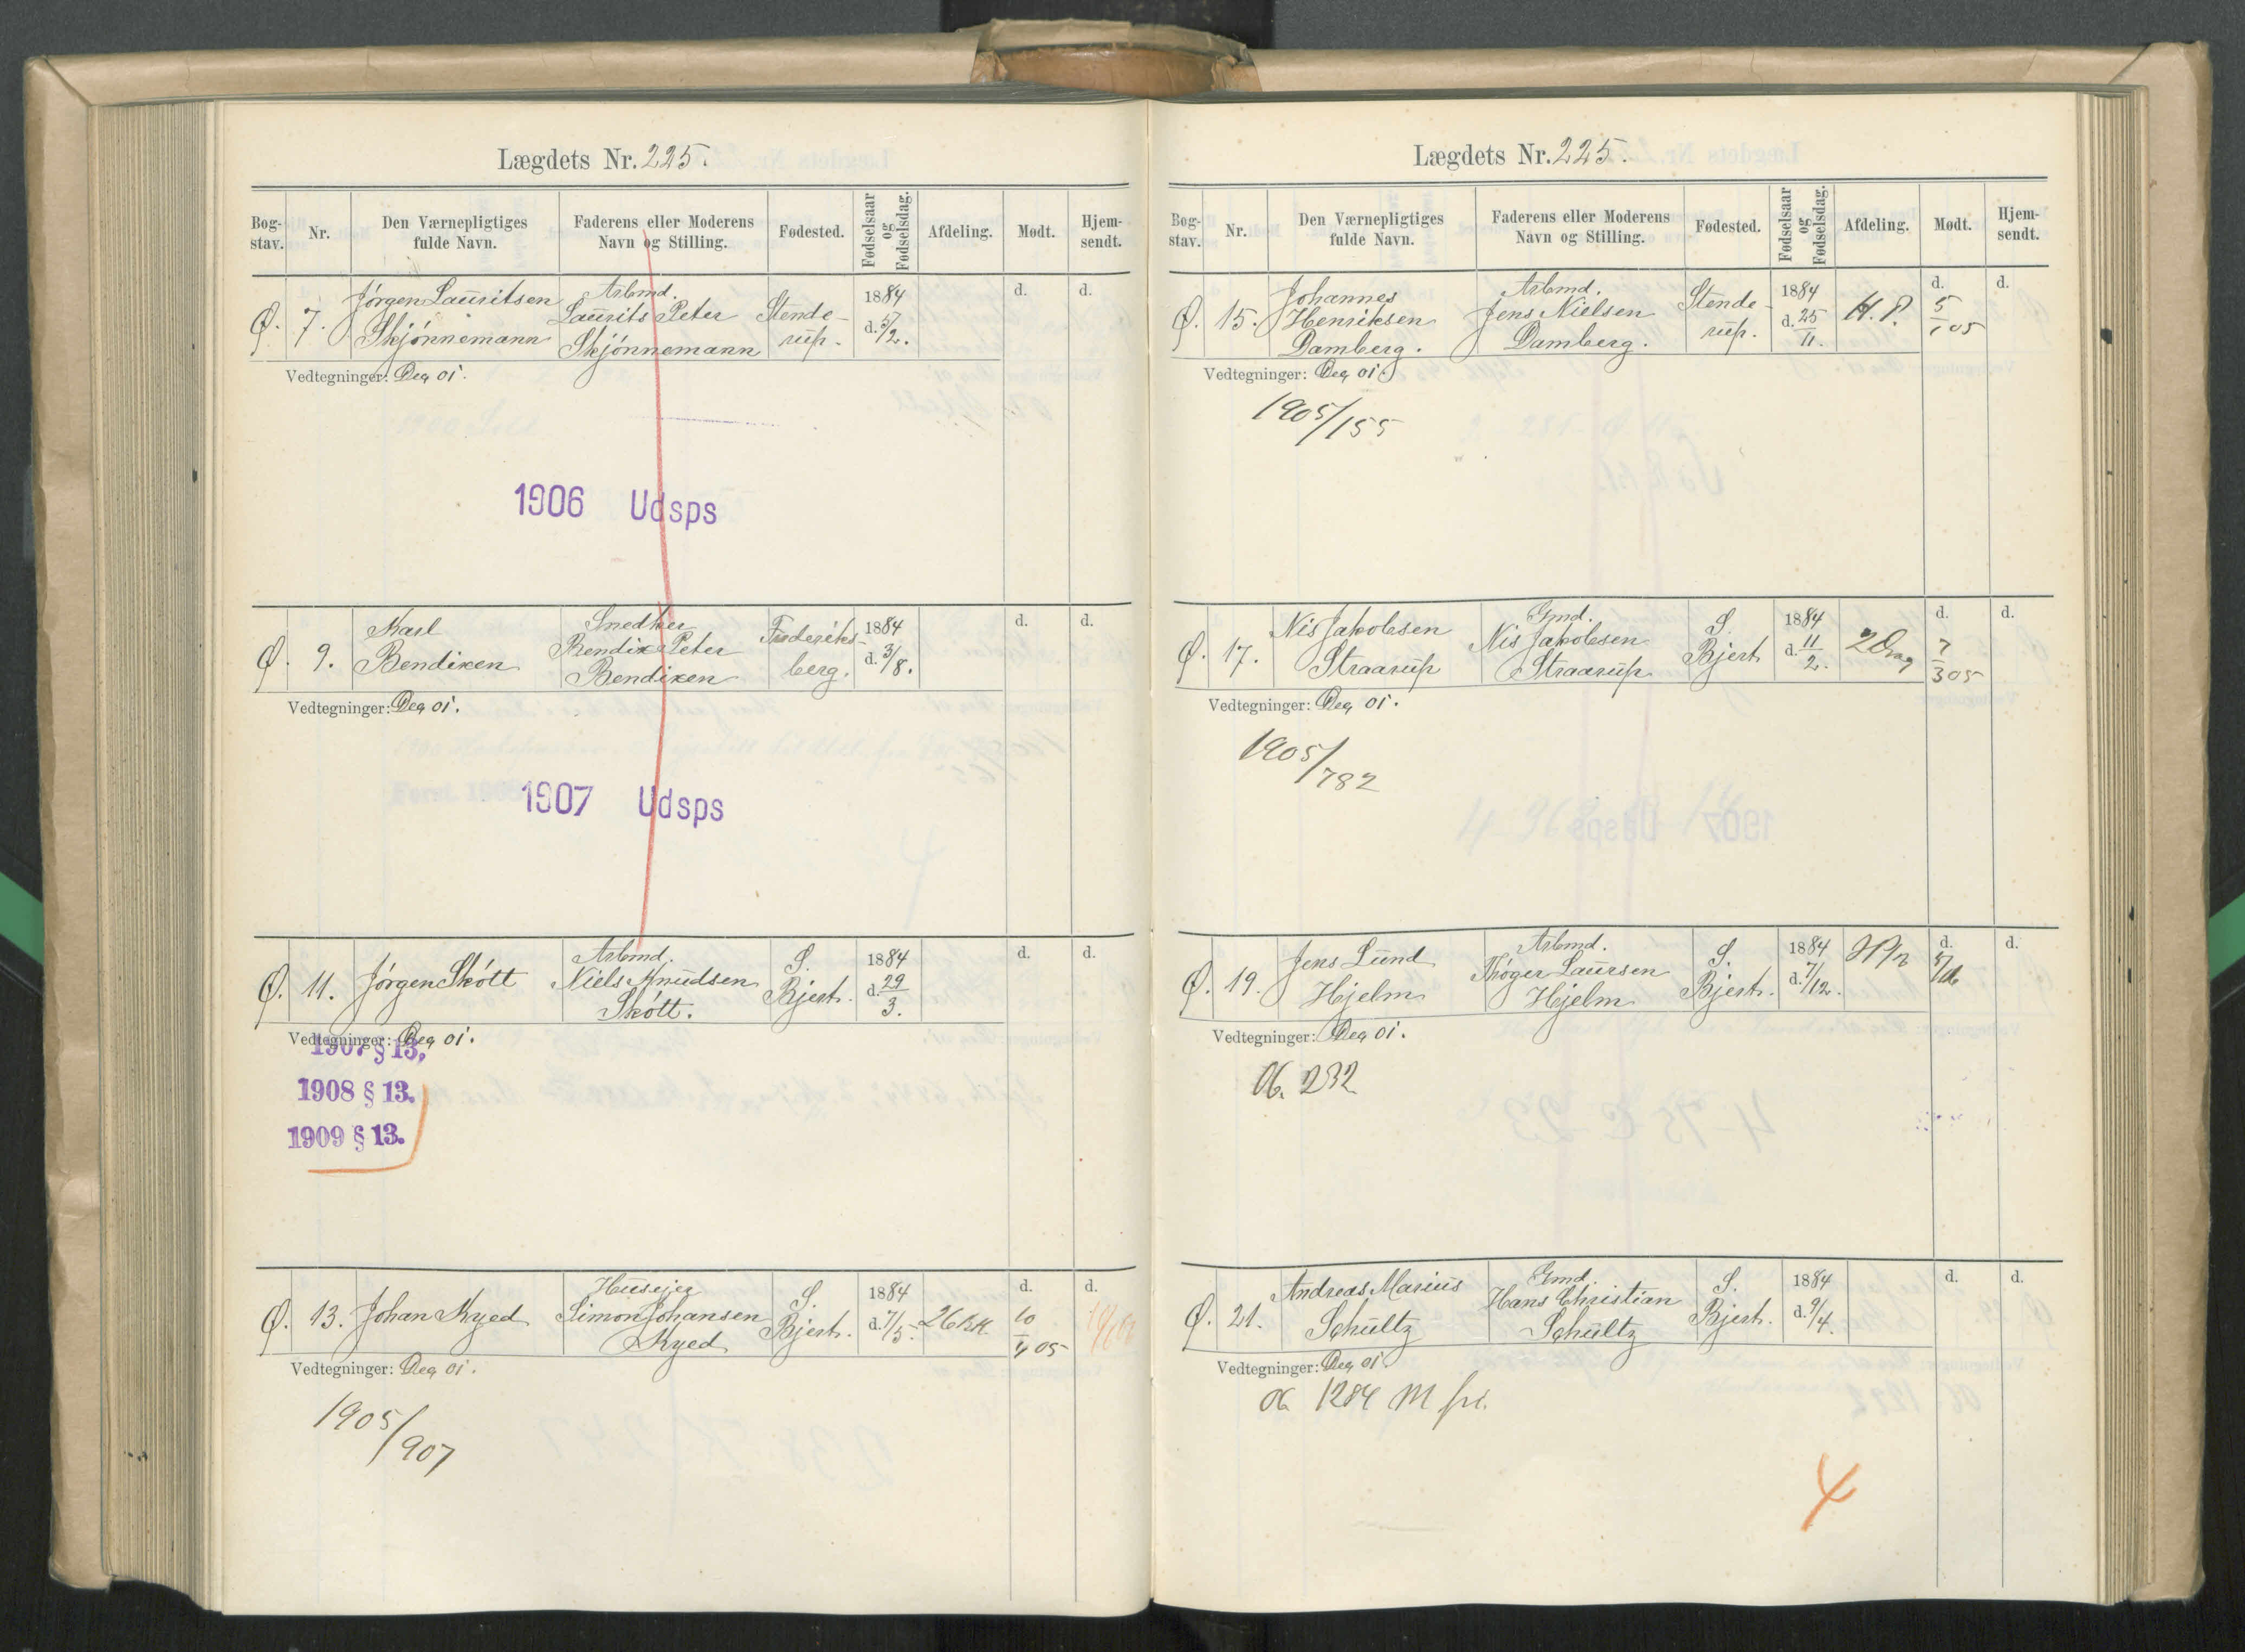 Lægdets Nr. 225.
Bog-stav. Nr. Den Værnepligtiges fulde Navn. Faderens eller Moderens Navn og Stilling. Fødested. Fødselsaar og Fødselsdag. Afdeling. Mødt. Hjem-sendt.
Ø. 7. Jørgen Lauritsen Skjönnemann Arbmd. Laurits Peter Skjönnemann Stende-rup. 1884 d. 5/2. d. d.
Vedtegninger: Deg 01.
1906 Udsps
Ø. 9. Karl Bendixen Snedker Bendix Peter Bendixen Frederiks-berg. 1884 d. 3/8. d. d.
Vedtegninger: Deg 01.
1907 Udsps
Ø. 11. Jørgen Skött Arbmd. Niels Knudsen Skött. S. Bjert. 1884 d. 29/3. d. d.
Vedtegninger: Deg 01.
1907 § 13,
1908 § 13.
1909 § 13.
Ø. 13. Johan Kyed Husejer Simon Johansen Kyed S. Bjert. 1884 d. 7/5. 26 BK d. 10/4 05 d.
Vedtegninger: Deg 01.
1905/907
Lægdets Nr. 225.
Bog-stav. Nr. Den Værnepligtiges fulde Navn. Faderens eller Moderens Navn og Stilling. Fødested. Fødselsaar og Fødselsdag. Afdeling. Mødt. Hjem-sendt.
Ø. 15. Johannes Henriksen Damberg. Arbmd. Jens Nielsen Damberg. Stende-rup. 1884 d. 25/11. H. P. d. 5/1 05 d.
Vedtegninger: Deg 01
1905/155
Ø. 17. Nis Jakobsen Straarup Gmd. Nis Jakobsen Straarup S. Bjert 1884 d. 11/2. 2 Drag d. 7/3 05 d.
Vedtegninger: Deg 01.
1905/782
Ø. 19. Jens Lund Hjelm Arbmd. Thøger Laursen Hjelm S. Bjert. 1884 d. 7/12. d. d.
Vedtegninger: Deg 01.
06. 232
Ø. 21. Andreas Marius Schultz Gmd. Hans Christian Schultz S. Bjert. 1884 d. 9/4. d. d.
Vedtegninger: Deg 01
06 1284 M fri.
4